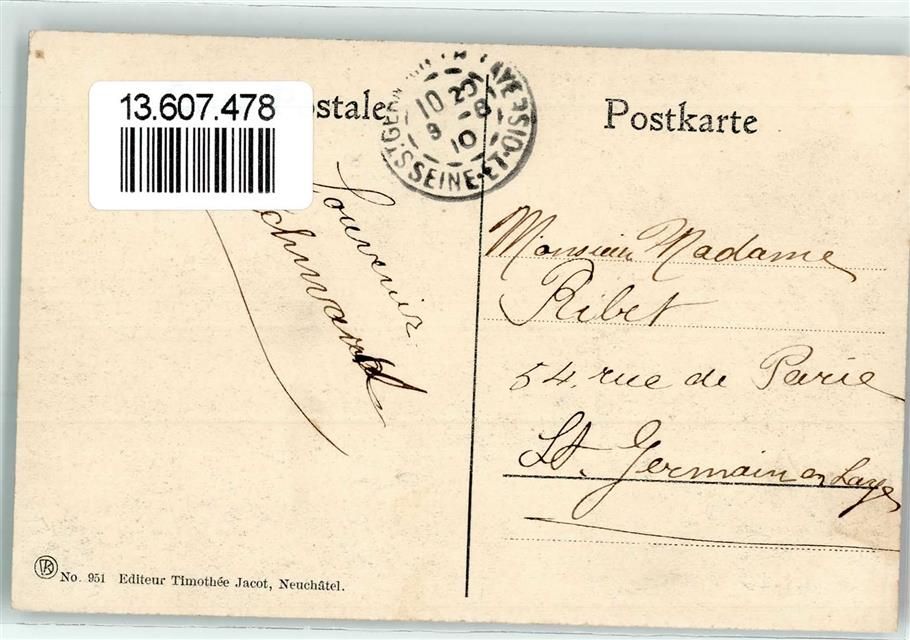 13.607.478
ostale
Postkarte
ST GERM
SEINE-ET-OISE
10 20
8 -8
10
Souvenir
Monsieur Madame
Ribet
54, rue de Paris
St. Germain en Laye
No. 951 Editeur Timothée Jacot, Neuchâtel.